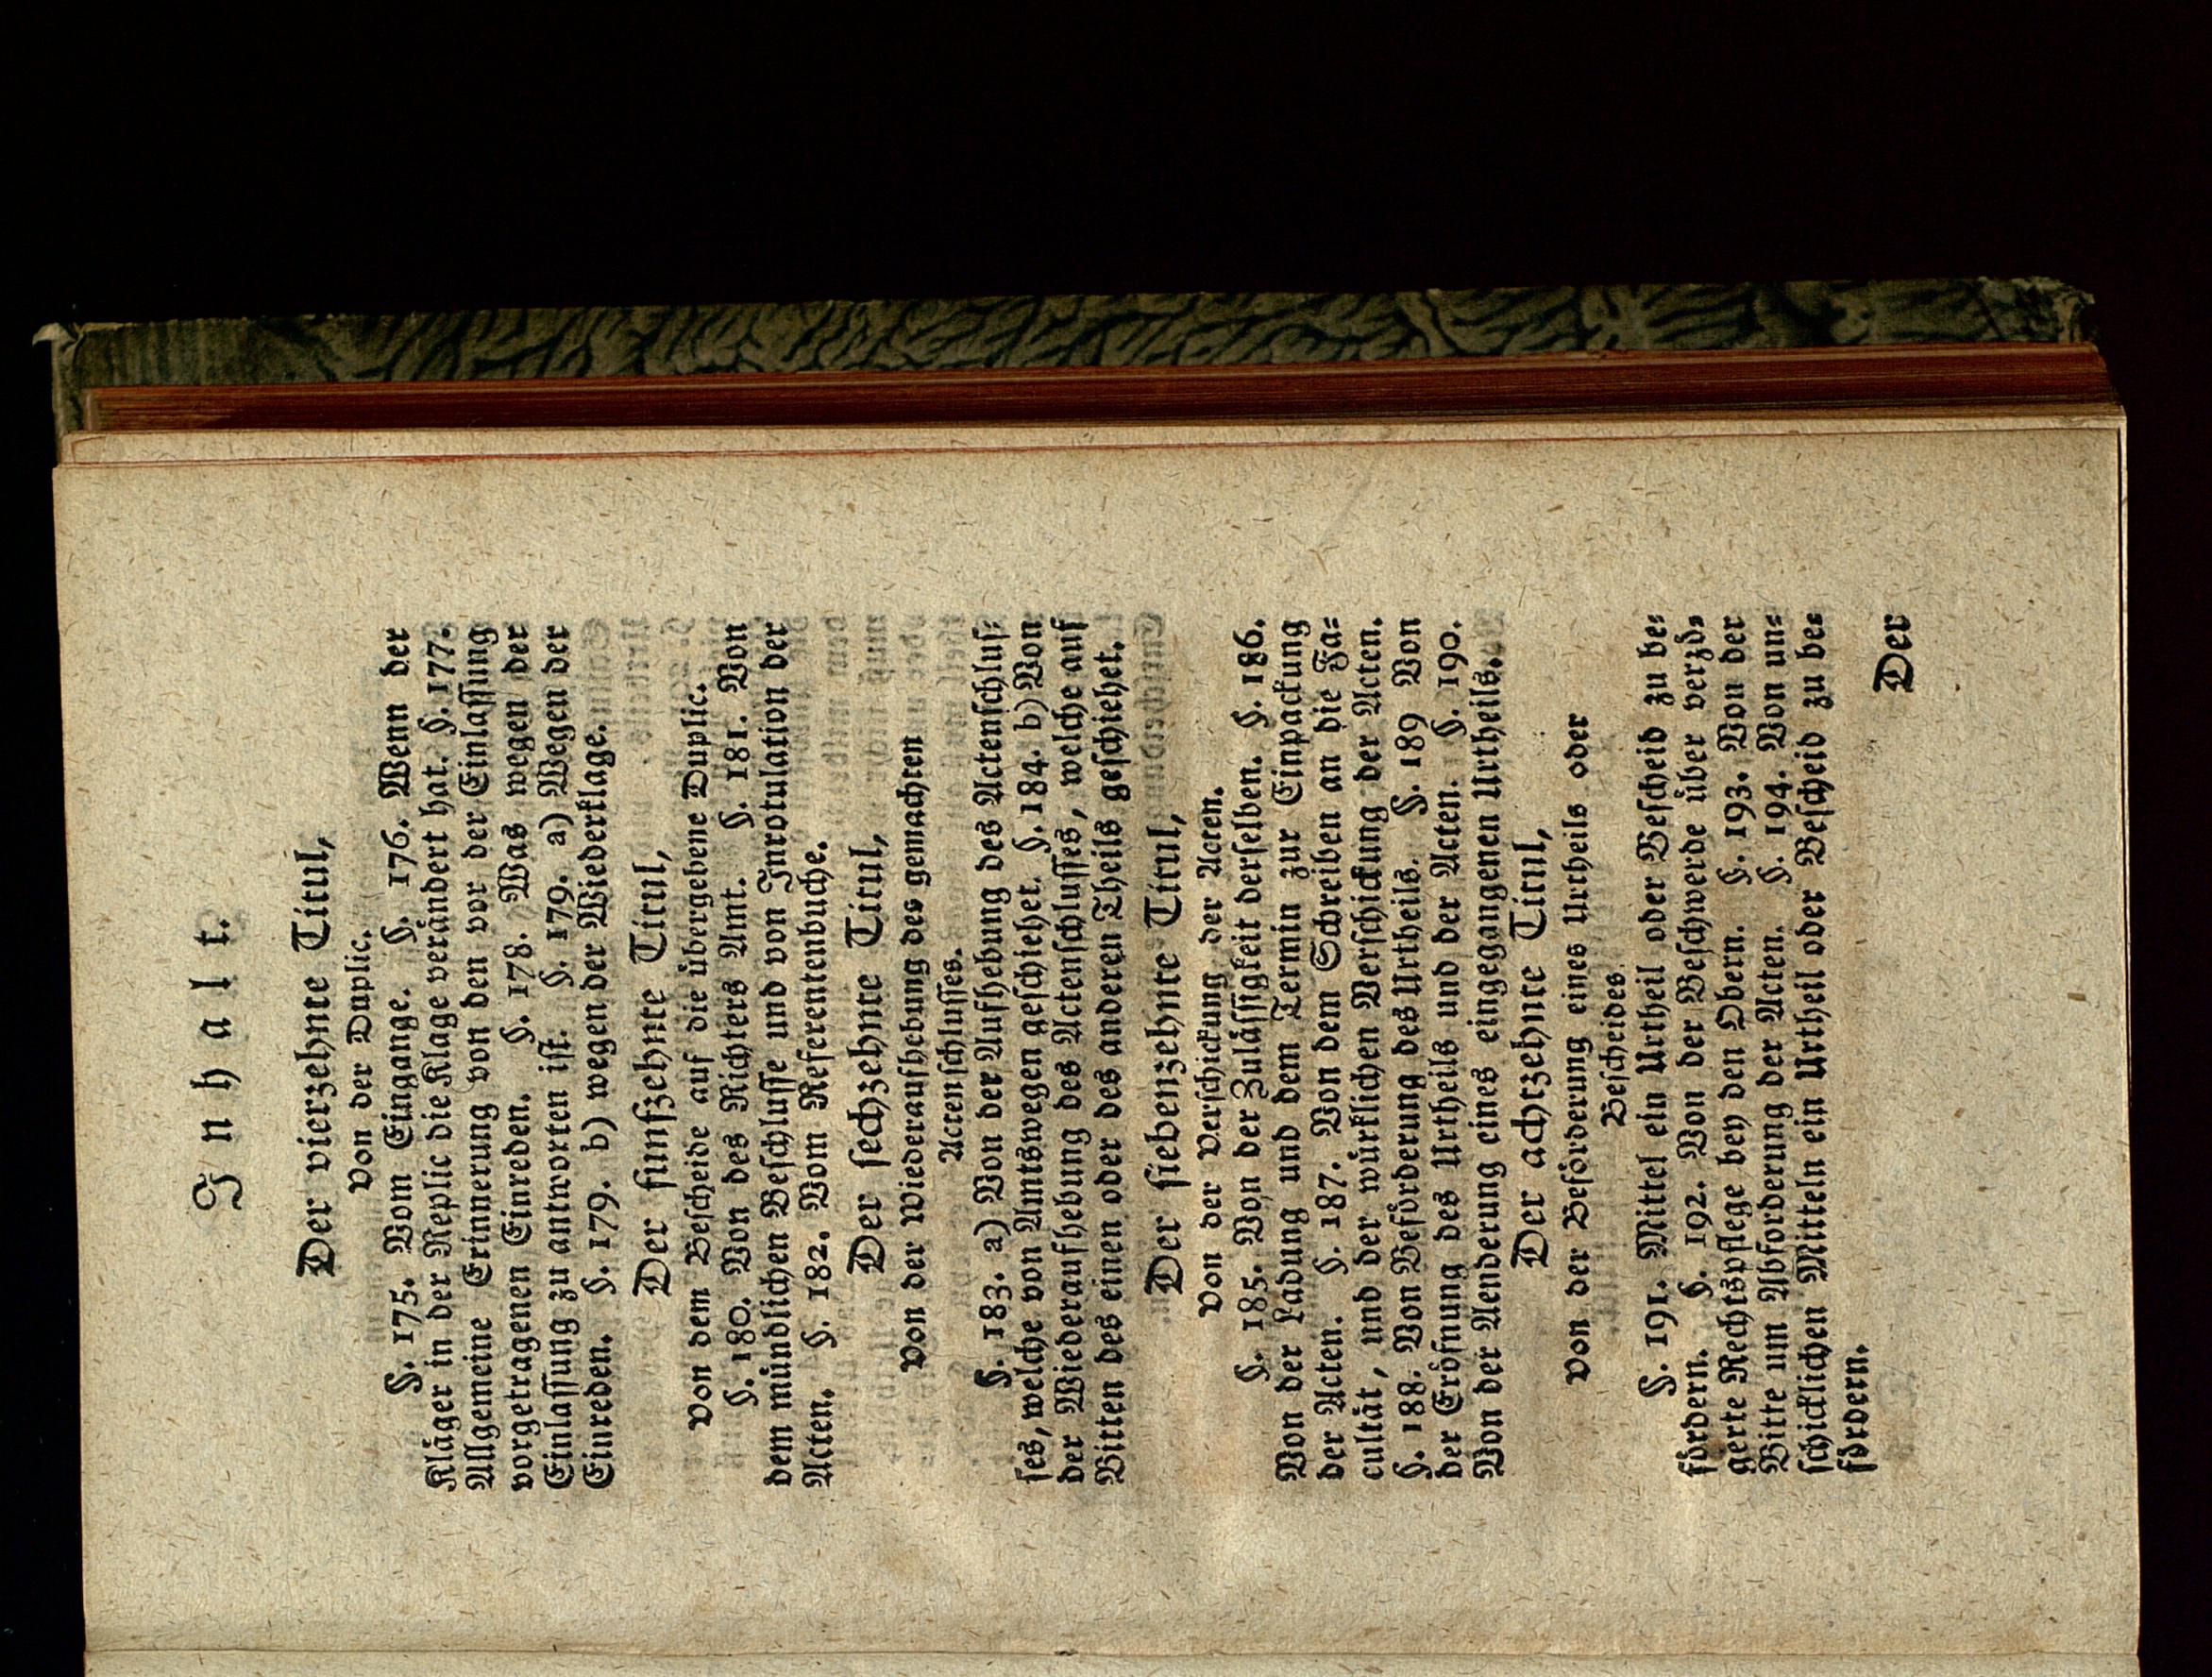 Inhalt.
Der vierzehnte Titul,
Von der Duplic.
§. 175. Vom Eingange. §. 176. Wenn der
Kläger in der Replic die Klage verändert hat. §. 177.
Allgemeine Erinnerung von den vor der Einlassung
vorgetragenen Einreden. §. 178. Was wegen der
Einlassung zu antworten ist. §. 179. a) Wegen der
Einreden. §. 179. b) wegen der Wiederklage.
Der funfzehnte Titul,
Von dem Bescheide auf die übergebene Duplic.
§. 180. Von des Richters Amt. §. 181. Von
dem mündlichen Beschlusse und von Inrotulation der
Acten. §. 182. Vom Referentenbuche.
Der sechzehnte Titul,
Von der Wiederaufhebung des gemachten
Actenschlusses.
§. 183. a) Von der Aufhebung des Actenschlus=
ses, welche von Amtswegen geschiehet. §. 184. b) Von
der Wiederaufhebung des Actenschlusses, welche auf
Bitten des einen oder des anderen Theils geschiehet.
Der siebenzehnte Titul,
Von der Verschickung der Acten.
§. 185. Von der Zulässigkeit derselben. §. 186.
Von der Ladung und dem Termin zur Einpackung
der Acten. §. 187. Von dem Schreiben an die Fa=
cultät, und der würklichen Verschickung der Acten.
§. 188. Von Beförderung des Urtheils. §. 189 Von
der Eröfnung des Urtheils und der Acten. §. 190.
Von der Aenderung eines eingegangenen Urtheils.
Der achtzehnte Titul,
Von der Beförderung eines Urtheils oder
Bescheides
§. 191. Mittel ein Urtheil oder Bescheid zu be=
fördern. §. 192. Von der Beschwerde über verzö=
gerte Rechtspflege bey den Obern. §. 193. Von der
Bitte um Abforderung der Acten. §. 194. Von un=
schicklichen Mitteln ein Urtheil oder Bescheid zu be=
fördern.
Der